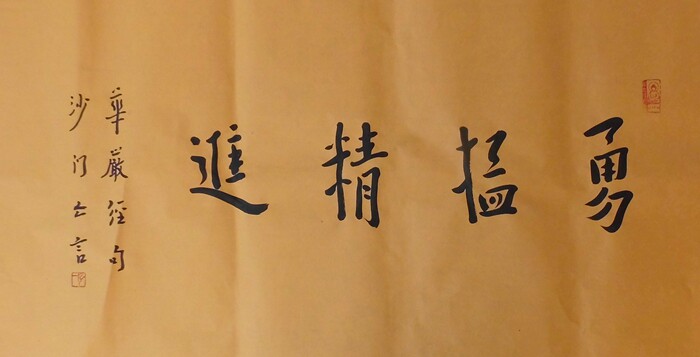 勇猛精進
華嚴經句
沙门亡言